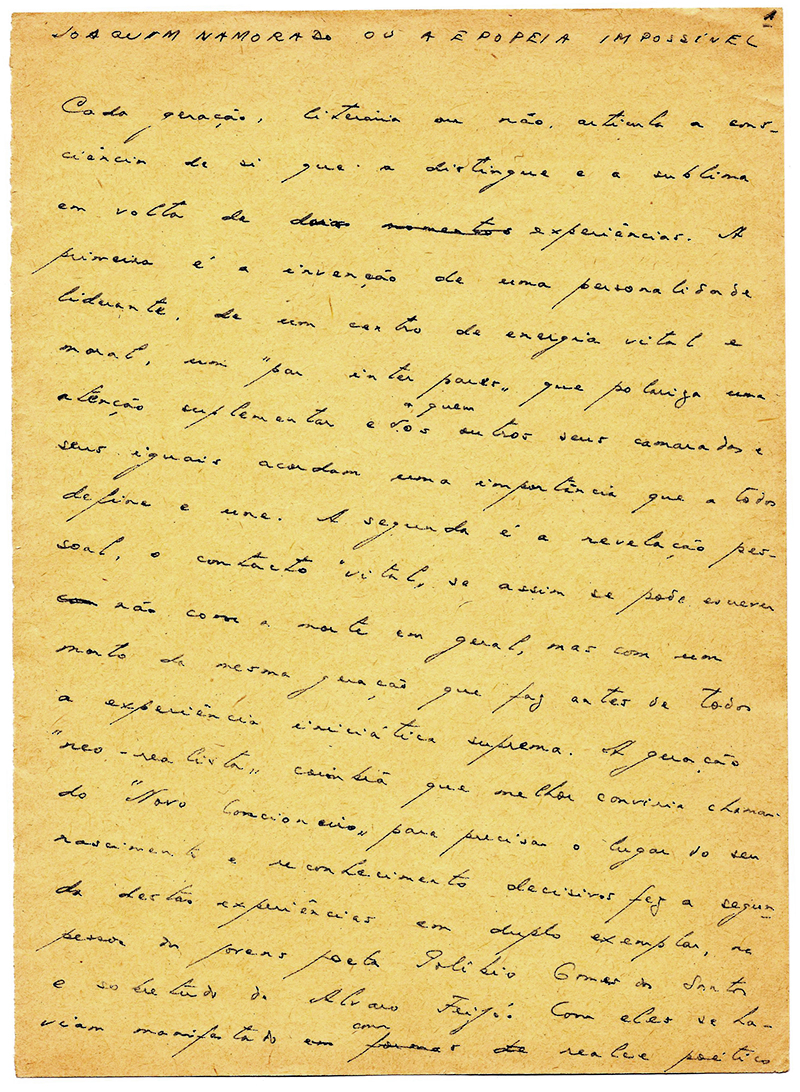 1
JOAQUIM NAMORADO OU A EPOPEIA IMPOSSÍVEL
Cada geração, literária ou não, articula a cons-
ciência de si que a distingue e a sublima
em volta de duas momentos experiências. A
primeira é a invenção de uma personalidade
liderante, de um centro de energia vital e
moral, um "par inter pares" que polariza uma
atenção suplementar e a quem os outros seus camaradas e
seus iguais acordam uma importância que a todos
define e une. A segunda é a revelação pes-
soal, o contacto "vital", se assim se pode escrever
não com a morte em geral, mas com um
morto da mesma geração que faz antes de todos
a experiência iniciática suprema. A geração
"neo-realista", coimbrã que melhor conviria chamar
do "Novo Cancioneiro", para precisar o lugar do seu
nascimento e reconhecimento decisivos fez a segun-
da destas experiências em duplo exemplar, na
pessoa do jovem poeta Políbio Gomes dos Santos
e sobretudo da Alvaro Feijó. Com eles se ha-
viam manifestado em com formas de realce poético